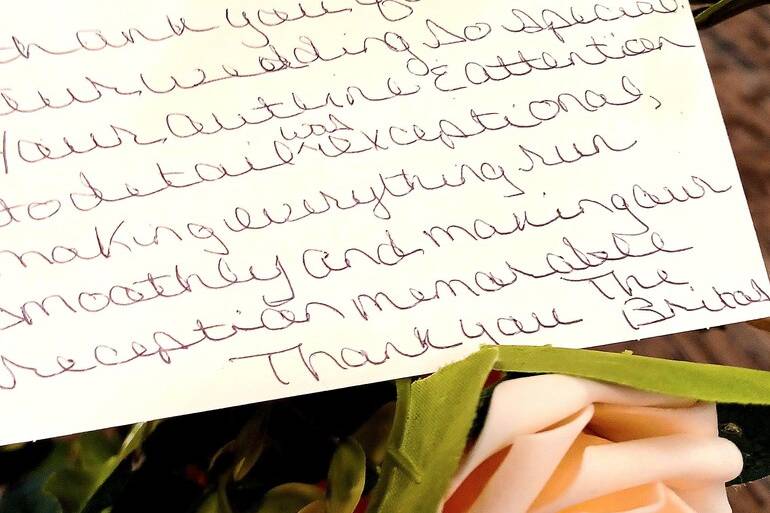 thank you for
our wedding so special.
Your caterine & attention
to detail was exceptional,
making everything run
smoothly and making our
reception memorable
Thank you The
Britos